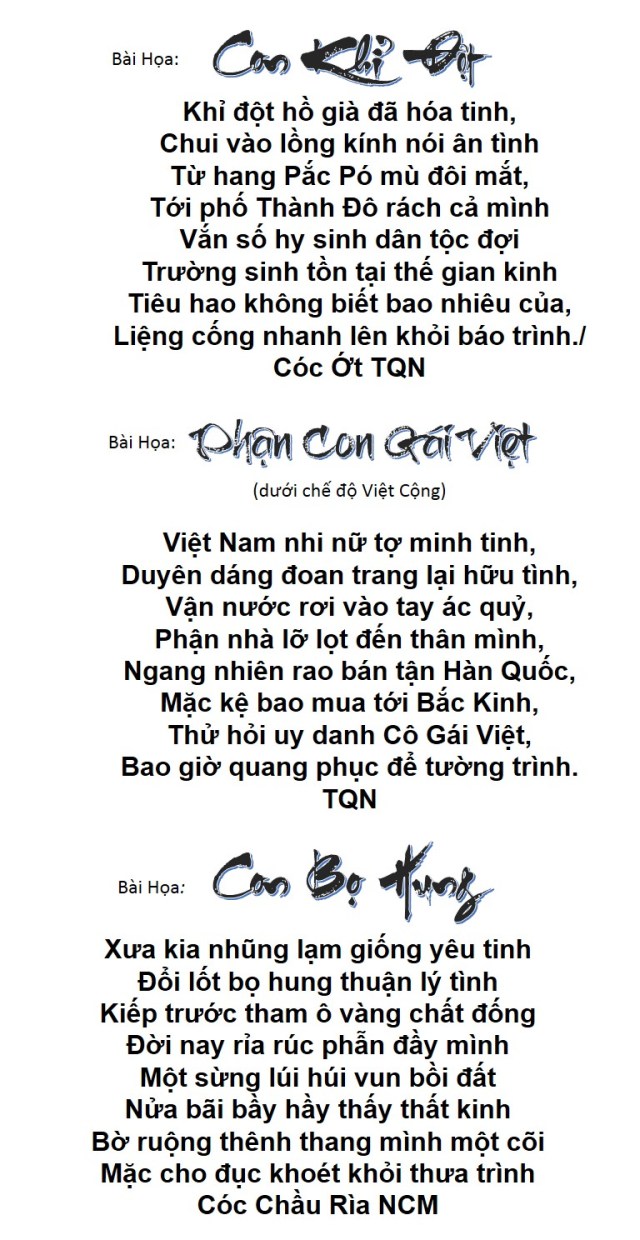 Bài Họa: Con Khỉ Đột
Khỉ đột hồ già đã hóa tinh,
Chui vào lồng kính nói ân tình
Từ hang Pắc Pó mù đôi mắt,
Tới phố Thành Đô rách cả mình
Vắn số hy sinh dân tộc đợi
Trường sinh tồn tại thế gian kinh
Tiêu hao không biết bao nhiêu của,
Liệng cống nhanh lên khỏi báo trình./
Cóc Ớt TQN
Bài Họa: Phận Con Gái Việt
(dưới chế độ Việt Cộng)
Việt Nam nhi nữ tợ minh tinh,
Duyên dáng đoan trang lại hữu tình,
Vận nước rơi vào tay ác quỷ,
Phận nhà lỡ lọt đến thân mình,
Ngang nhiên rao bán tận Hàn Quốc,
Mặc kệ bao mua tới Bắc Kinh,
Thử hỏi uy danh Cô Gái Việt,
Bao giờ quang phục để tường trình.
TQN
Bài Họa: Con Bọ Hung
Xưa kia nhũng lạm giống yêu tinh
Đổi lốt bọ hung thuận lý tình
Kiếp trước tham ô vàng chất đống
Đời nay rỉa rúc phẫn đầy mình
Một sừng lúi húi vun bồi đất
Nửa bãi bầy hầy thấy thất kinh
Bờ ruộng thênh thang mình một cõi
Mặc cho đục khoét khỏi thưa trình
Cóc Chầu Rìa NCM